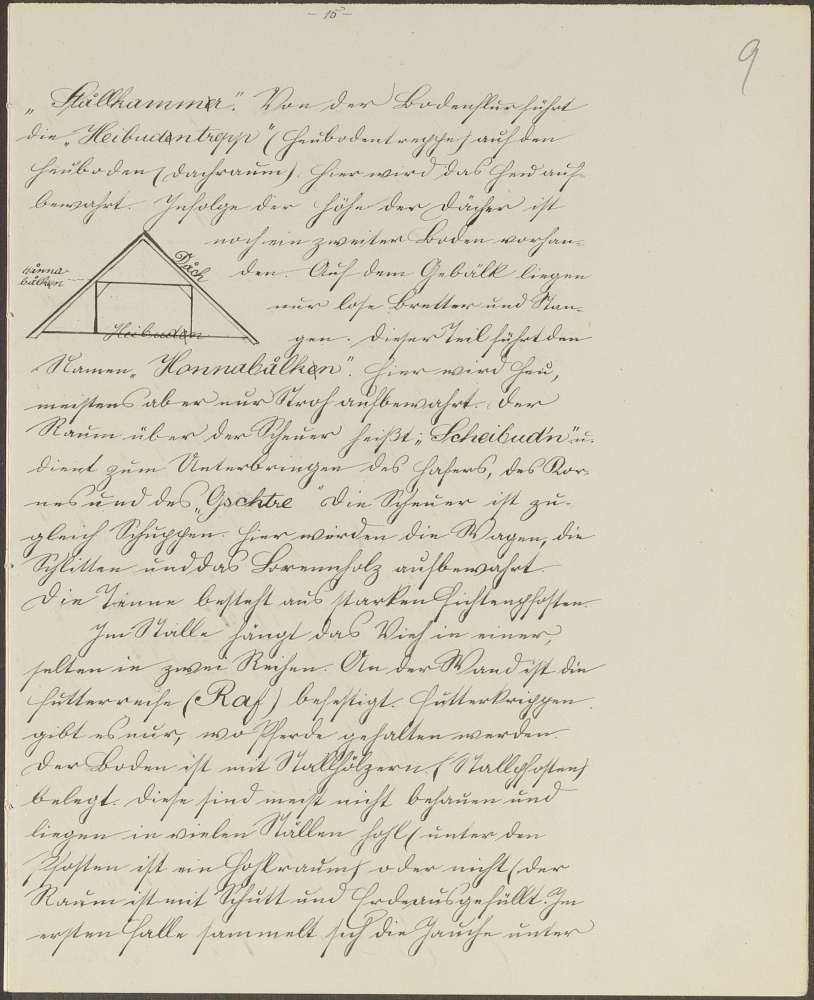 - 15 -
9
„Stållkammer". Von der Bodenflur führt
die „Heibudentrepp" (Heubodentreppe) auf den
Heuboden (Dachraum). Hier wird das Heu auf-
bewahrt. Infolge der Höhe der Dächer ist
noch ein zweiter Boden vorhan-
den. Auf dem Gebälk liegen
nur lose Bretter und Stan-
gen. Dieser Teil führt den
Dåch
Hånna-
bålken
Heibuden
Namen „Honnabålken". Hier wird Heu,
meistens aber nur Stroh aufbewahrt. Der
Raum über der Scheuer heißt: „Scheibud'n" u.
dient zum Unterbringen des Hafers, des Kor-
nes und des „Gschtre" Die Scheuer ist zu-
gleich Schuppen. Hier werden die Wagen, die
Schlitten und das Brennholz aufbewahrt.
Die Tenne besteht aus starken Fichtenpfosten.
Im Stalle hängt das Vieh in einer,
selten in zwei Reihen. An der Wand ist die
Futterreife (Raf) befestigt. Futterkrippen
gibt es nur, wo Pferde gehalten werden.
Der Boden ist mit Stallhölzern (Stallpfosten)
belegt. Diese sind meist nicht behauen und
liegen in vielen Ställen hohl (unter den
Pfosten ist ein Hohlraum) oder nicht (der
Raum ist mit Schutt und Erde ausgefüllt. Im
ersten Falle sammelt sich die Jauche unter